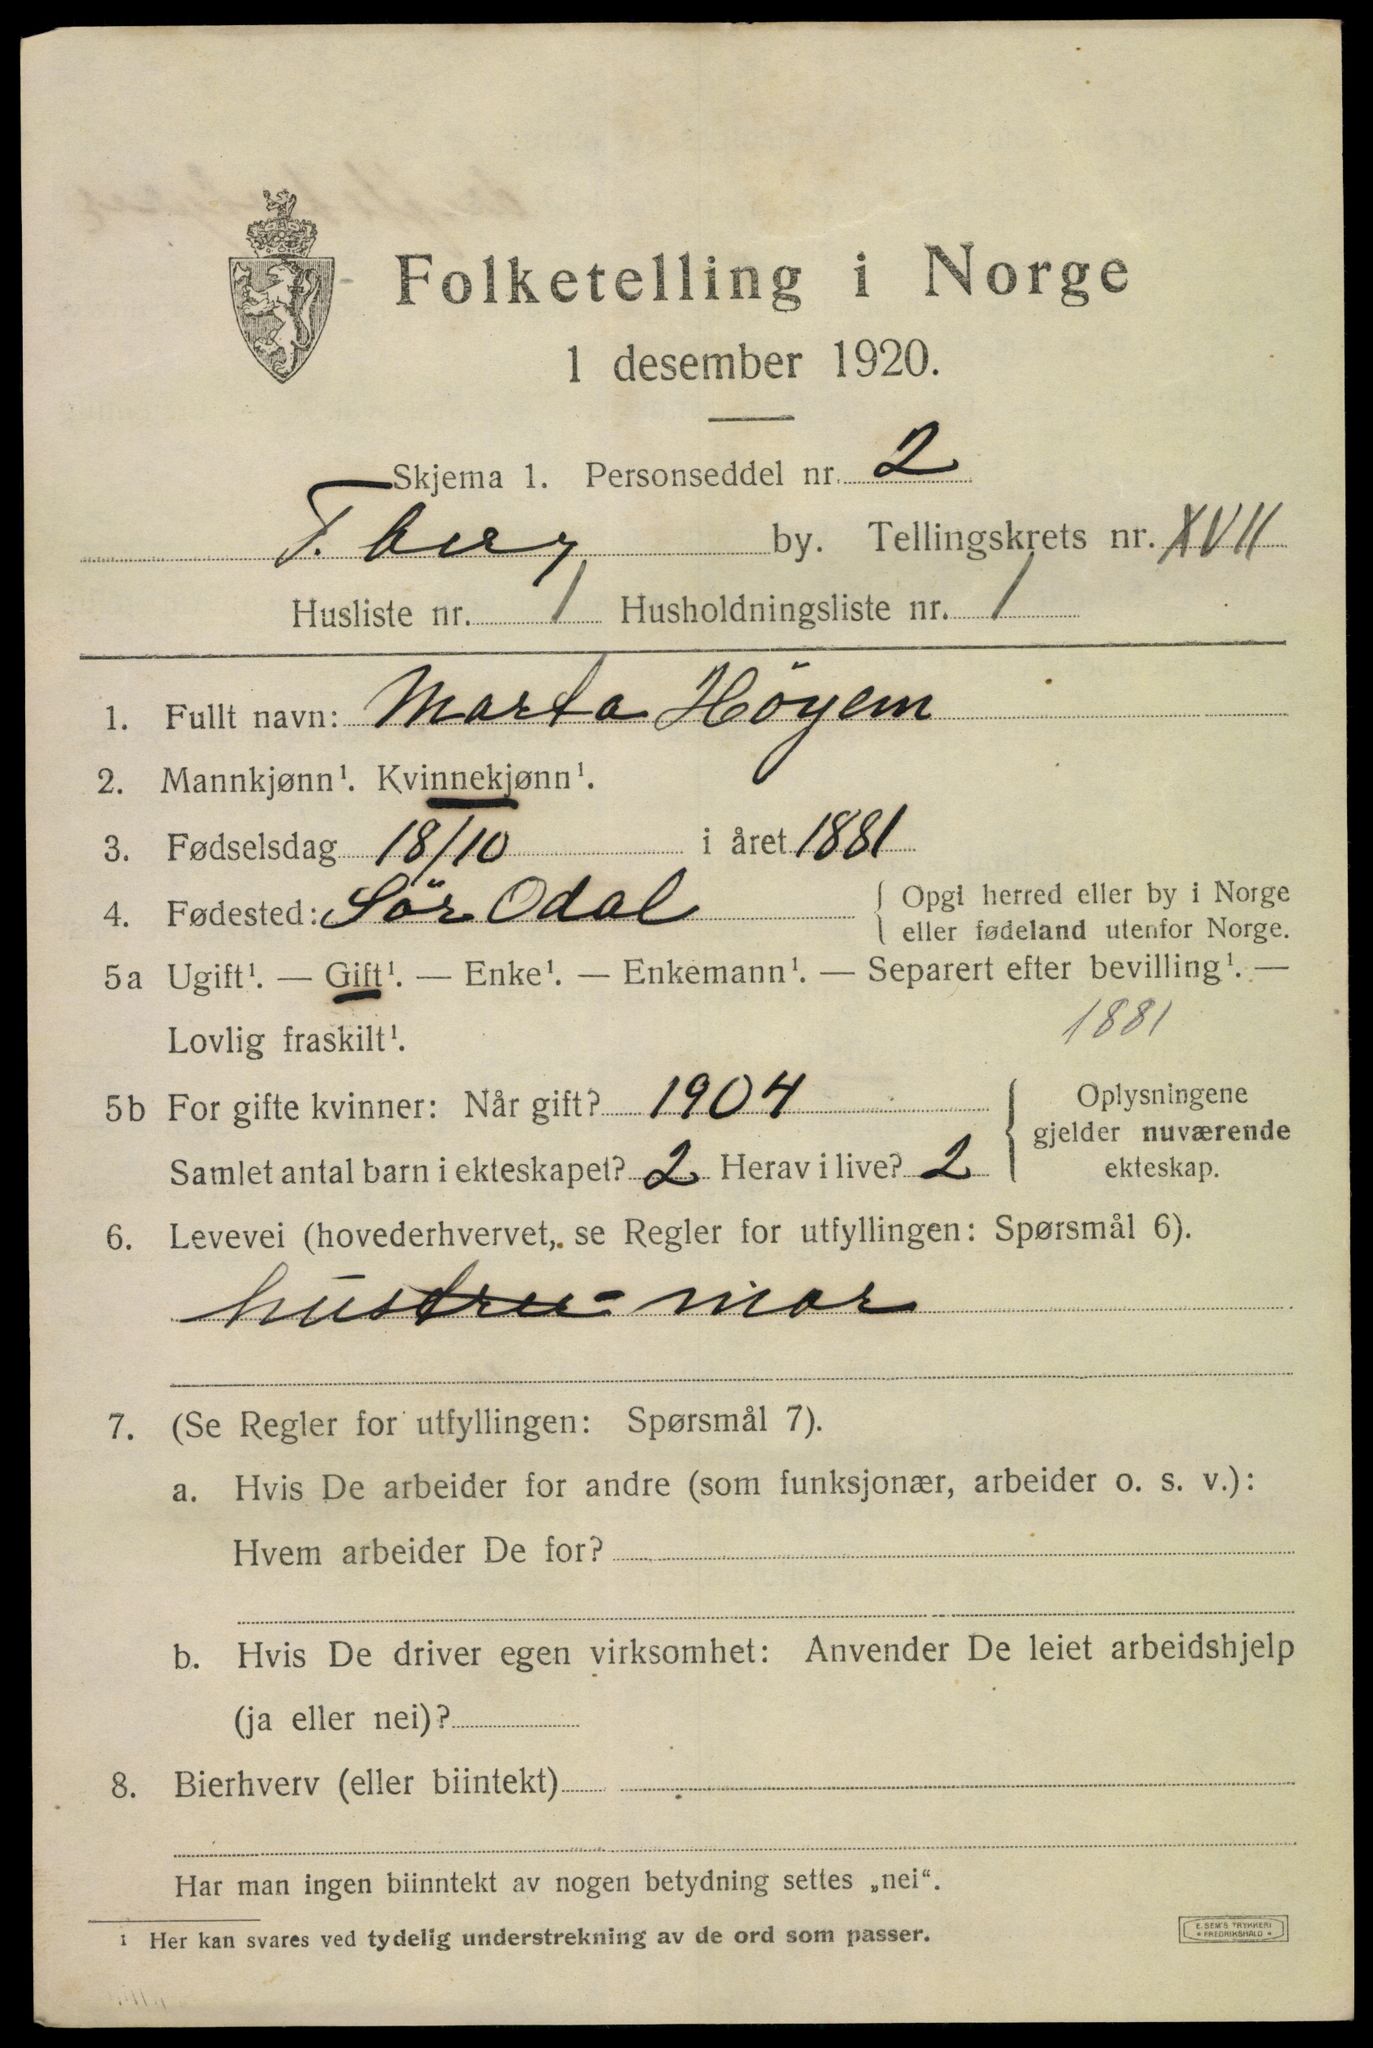 Folketelling i Norge
1 desember 1920.
Skjema 1. Personseddel nr. 2
T.berg by. Tellingskrets nr. XVII
Husliste nr. 1 Husholdningsliste nr. 1
1. Fullt navn: Marta Höyem
2. Mannkjønn¹. Kvinnekjønn¹.
3. Fødselsdag 18/10 i året 1881
4. Fødested: Sör Odal { Opgi herred eller by i Norge
eller fødeland utenfor Norge.
5a Ugift¹. — Gift¹. — Enke¹. — Enkemann¹. — Separert efter bevilling¹. —
Lovlig fraskilt¹. 1881
5b For gifte kvinner: Når gift? 1904 { Oplysningene
gjelder nuværende
Samlet antal barn i ekteskapet? 2 Herav i live? 2 ekteskap.
6. Levevei (hovederhvervet, se Regler for utfyllingen: Spørsmål 6).
hustru - mor
7. (Se Regler for utfyllingen: Spørsmål 7).
a. Hvis De arbeider for andre (som funksjonær, arbeider o. s. v.):
Hvem arbeider De for?
b. Hvis De driver egen virksomhet: Anvender De leiet arbeidshjelp
(ja eller nei)?
8. Bierhverv (eller biintekt)
Har man ingen biinntekt av nogen betydning settes „nei“.
¹ Her kan svares ved tydelig understrekning av de ord som passer.
E. SEM'S TRYKKERI
* FREDRIKSHALD *